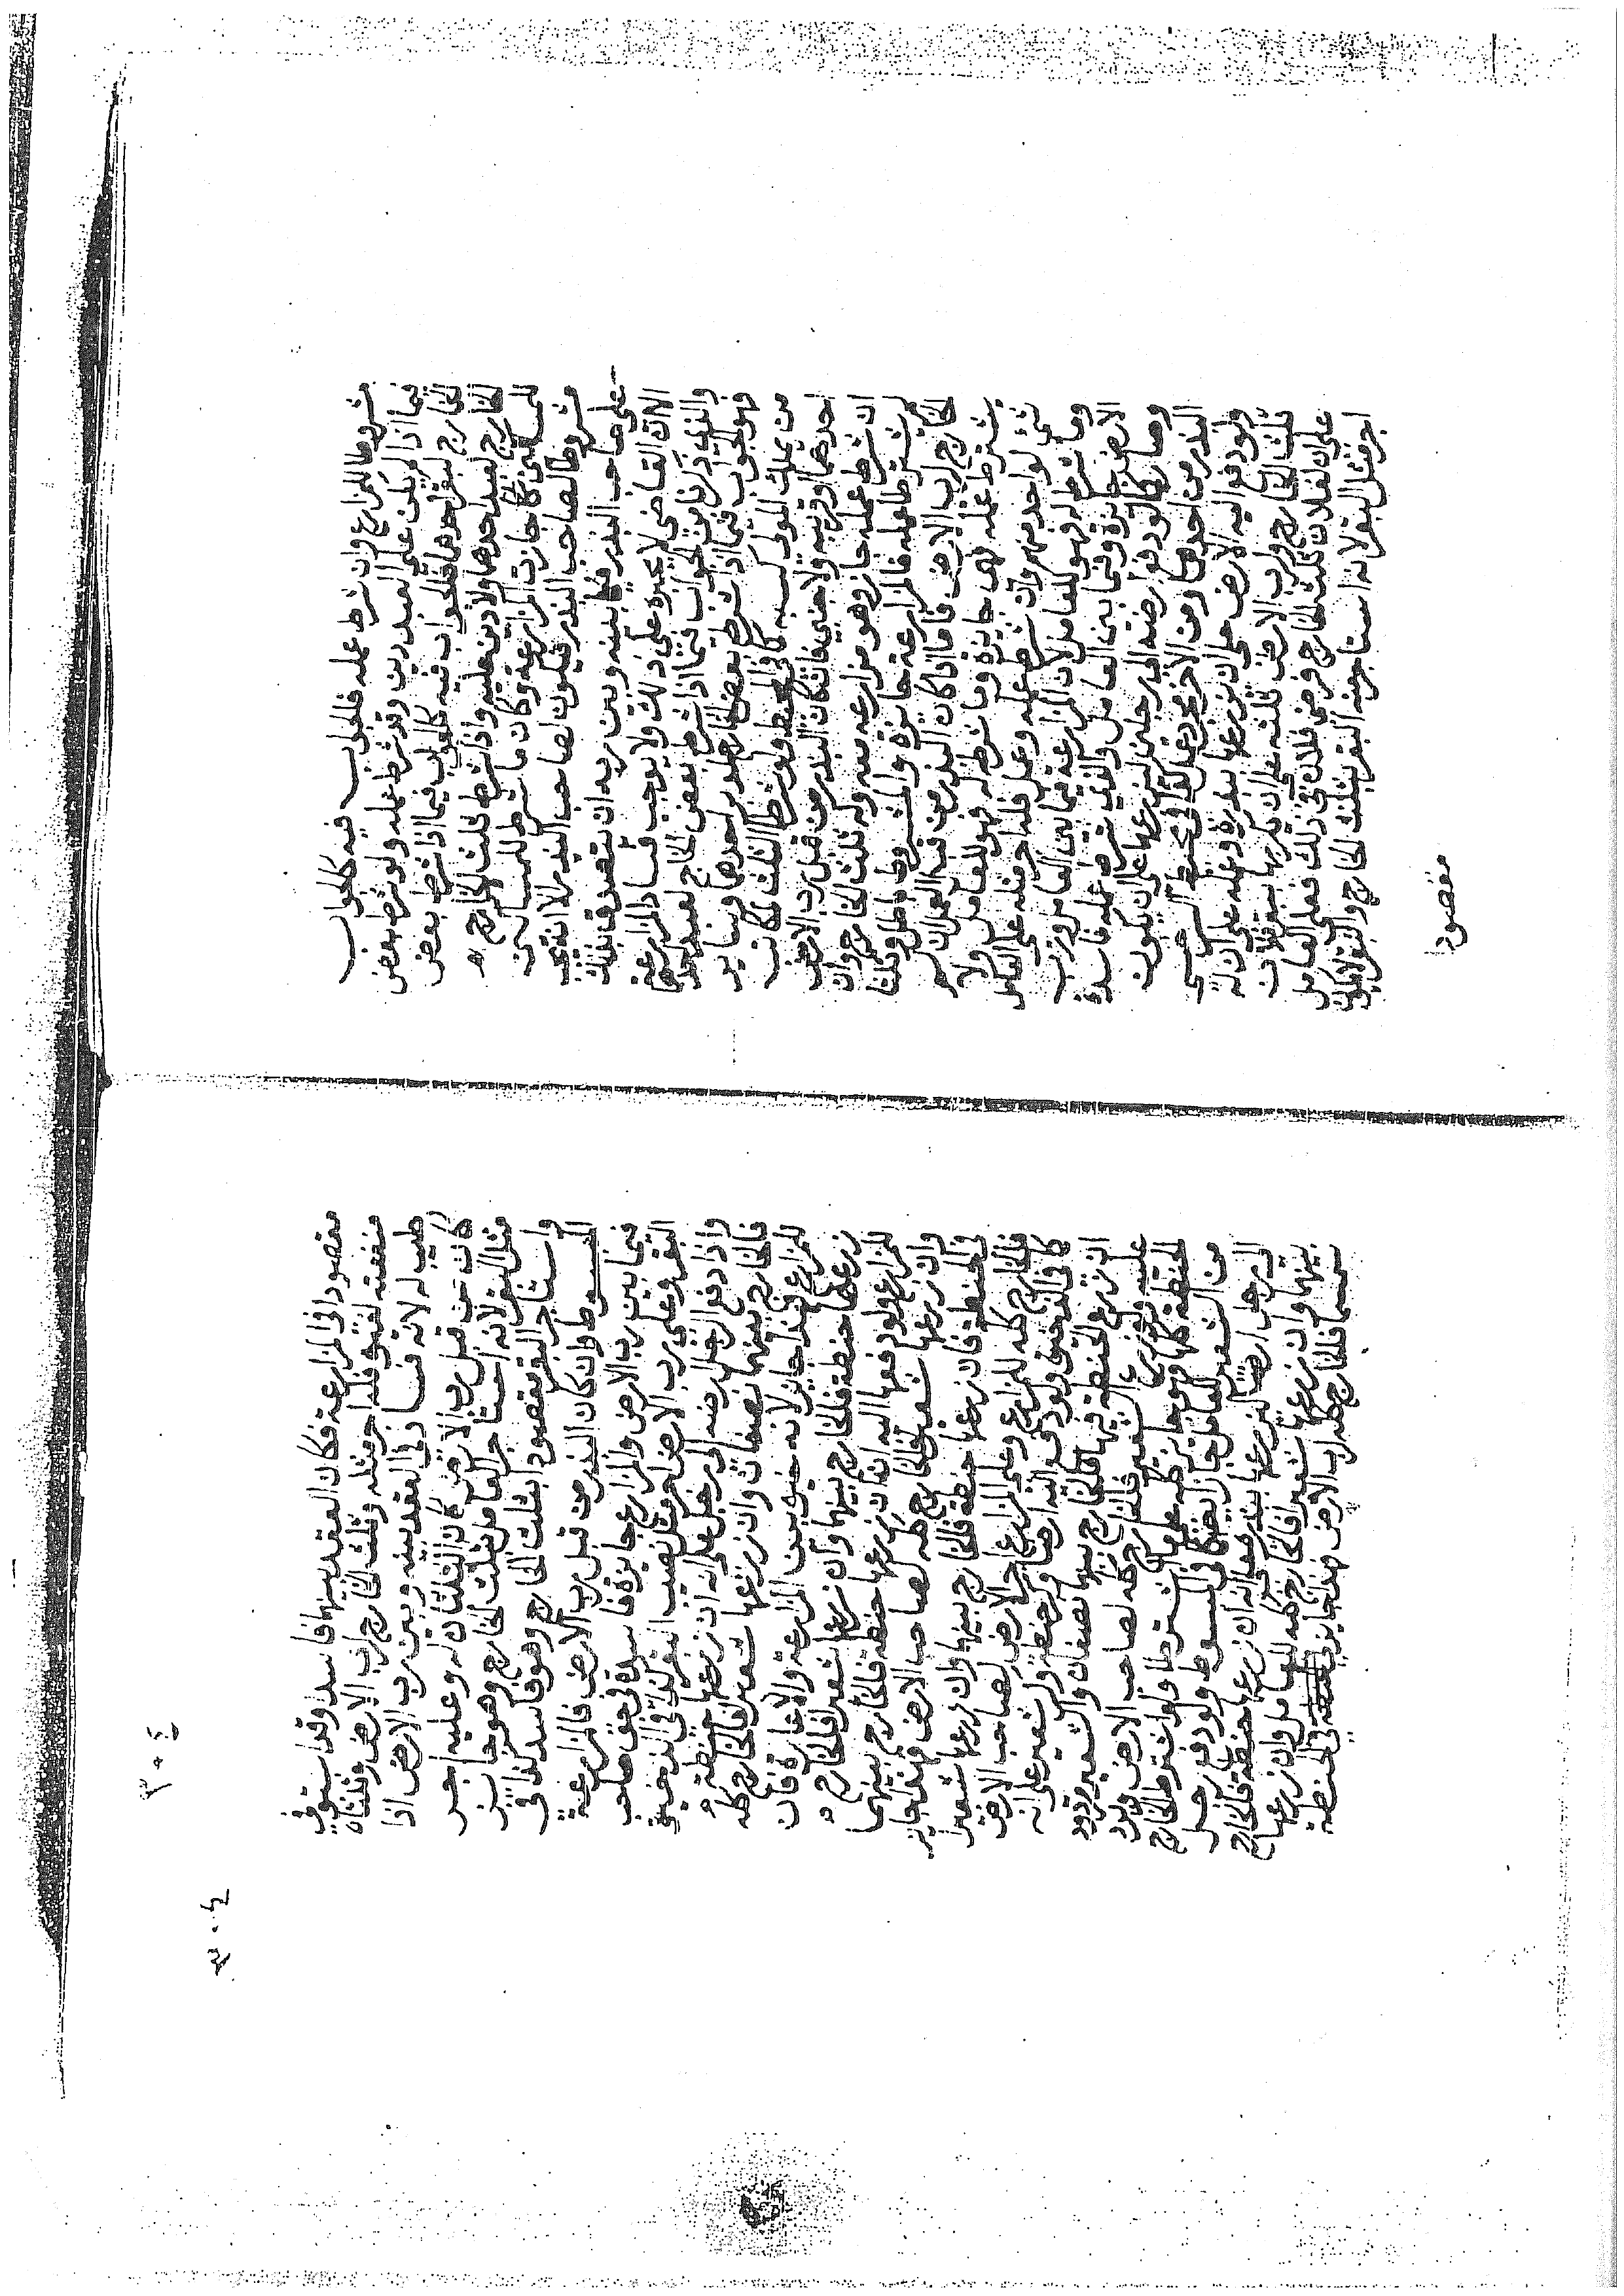 مشروطا للمزارع وان شرط عمله فالجواب فيه كالجواب
فيما اذا لم يكن على العبد دين وقد شرط عمله ولو شرط بعض
الخارج لبقر احدهما فالجواب فيه كالجواب فيما اذا شرط بعض
الخارج لعبد احدهما ولا دين عليه واذا شرط ثلث الخارج
للمساكين جازت المزارعة وكان ما شرط للمساكين
مشروطا لصاحب البذر فيكون لصاحب البذر الا انه يجب
على صاحب البذر فيما بينه وبين ربه ان يتصدق بذلك
الا ان القاضي لا يجبره على ذلك ولا يوجب فساد المزارعة
والذي ذكرنا من الجواب فيما اذا شرط بعض الخارج لعبد احدهما
فهو الجواب فيما اذا شرط بعض الخارج لمدبر احدهما وسائر
من يملك المولى كسبه كذا في المحيط ولو شرط الثلث لمكاتب
احدهما او قريبه او لاجنبي فان كان البذر من قبل رب الارض
ان شرط عمله جاز وهو مزارعة معه وله ثلث الخارج وان
لم يشترط عمله فالمزارعة جائزة والمشروط باطل وثلثا
الخارج لرب الارض فاما اذا كان البذر من قبل العامل ان لم
يشترط عمله فهي جائزة وما شرط له فهو للعامل ولا
شي لواحد منهم وان شرط عمله وعمل فله اجر مثله على العامل
وما شرط له فهو للعامل لان المزارعة فيما بين العامل ورب
الارض جائزة وفيما بين العامل والذي شرط عمله فاسدة
وصار كما لو دفع ارضه الى رجلين ليزرعا على ان يكون
البذر من احدهما ومن الآخر مجرد عمل كذا في محيط السرخسي
ولو دفع اليه الارض على ان يزرعها ببذره وعمله على ان له
ثلث الخارج ولرب الارض ثلثه على ان يكربها ببقر فلان
على ان لفلان ثلث الخارج فرضي فلان في ذلك فعلى العامل
اجر مثل البقر لانه استاجر منه البقر بثلث الخارج والبقر لا يكون
مقصودا
مقصودا في المزارعة فكان العقد بينهما فاسدا وقد استوفى
منفعته لبقره فله اجر مثله وثلث الخارج لرب الارض وثلثاه
طيب له لانه لا فساد في العقد بينه وبين رب الارض اذا
كان من قبل رب الارض كان الثلثان له وعليه اجر
مثل البقر لانه استاجر العامل بثلث الخارج وهو جائز
واستاجر البقر مقصودا بثلث الخارج وهو فاسد كذا في
المبسوط وان كان البذر من قبل رب الارض فالمزارعة
فيما بين رب الارض والمزارع جائزة فاسدة في حق صاحب
البقر وعلى رب الارض اجر مثل نصيب البقر كذا في الذخيرة
واذا دفع الرجل ارضه الى رجل على انه ان زرعها حنطة
فالخارج بينهما نصفان وان زرعها شعيرا فالخارج كله
للمزارع فهذا جائز لانه خيره بين المزارعة والاعارة فان
زرعها حنطة فالخارج بينهما وان زرعها شعيرا فالخارج
للمزارع ولو دفعها اليه ان زرعها حنطة فالخارج بينهما
وان زرعها شعيرا فالخارج كله لصاحب الارض فهذا جائز
في الحنطة فان زرعها حنطة فالخارج بينهما وان زرعها شعيرا
فالخارج كله للمزارع وعلى المزارع اجر الارض لصاحب الارض
كذا في الذخيرة ولو دفع اليه ارضا وكر حنطة وكر شعير على انه
ان زرع الحنطة فيها فالخارج بينهما نصفان والشعير مردود
عليه وان زرع الشعير فالخارج كله لصاحب الارض ويرد
الحنطة كلها فهو جائز كله على ما اشترطا ولو اشترط الخارج
من الشعير للعامل جاز ايضا كذا في المبسوط ولو دفع رجل
الى رجل ارضا ليزرعها ببذره على انه ان زرعها حنطة فالخارج
بينهما وان زرعها شعيرا فالخارج كله للعامل وان زرعها
سمسما فالخارج كله لرب الارض فهذا جائز في الحنطة
٣٠٤
٣٠٤